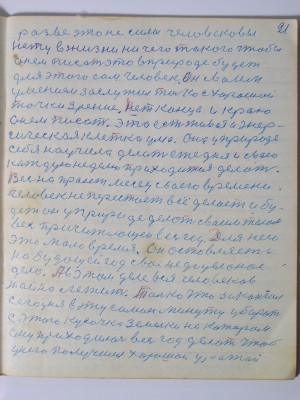 21
разве это не силы человековы
нету в жизни ничего такого чтобы
о нем писат это в природе будет
для этого сам человек. Он своим
умением заслужил только с хорошой
точки зрение. Нет конца и краю
о нем писат. Это естятвая энер-
гическая клетка ума. Она у природе
себя научила делат ежедня и свою
каждую неделю приходится делат.
Весь на правт месец своего времени.
Человек не престает всё делает и бу-
дет он у природе делат своим таким
век причитающи весь год. Для него
это мало время. Он оставляеть
на будущей год свое не доделоное
дело. А в этом деле вся человеков
тайно лежит. Только что закончил
сегодня в эту самаю минуту убират
с этого кусочка землю на котором
ему приходилос весь год делат этой
у него получился хорошой урожай